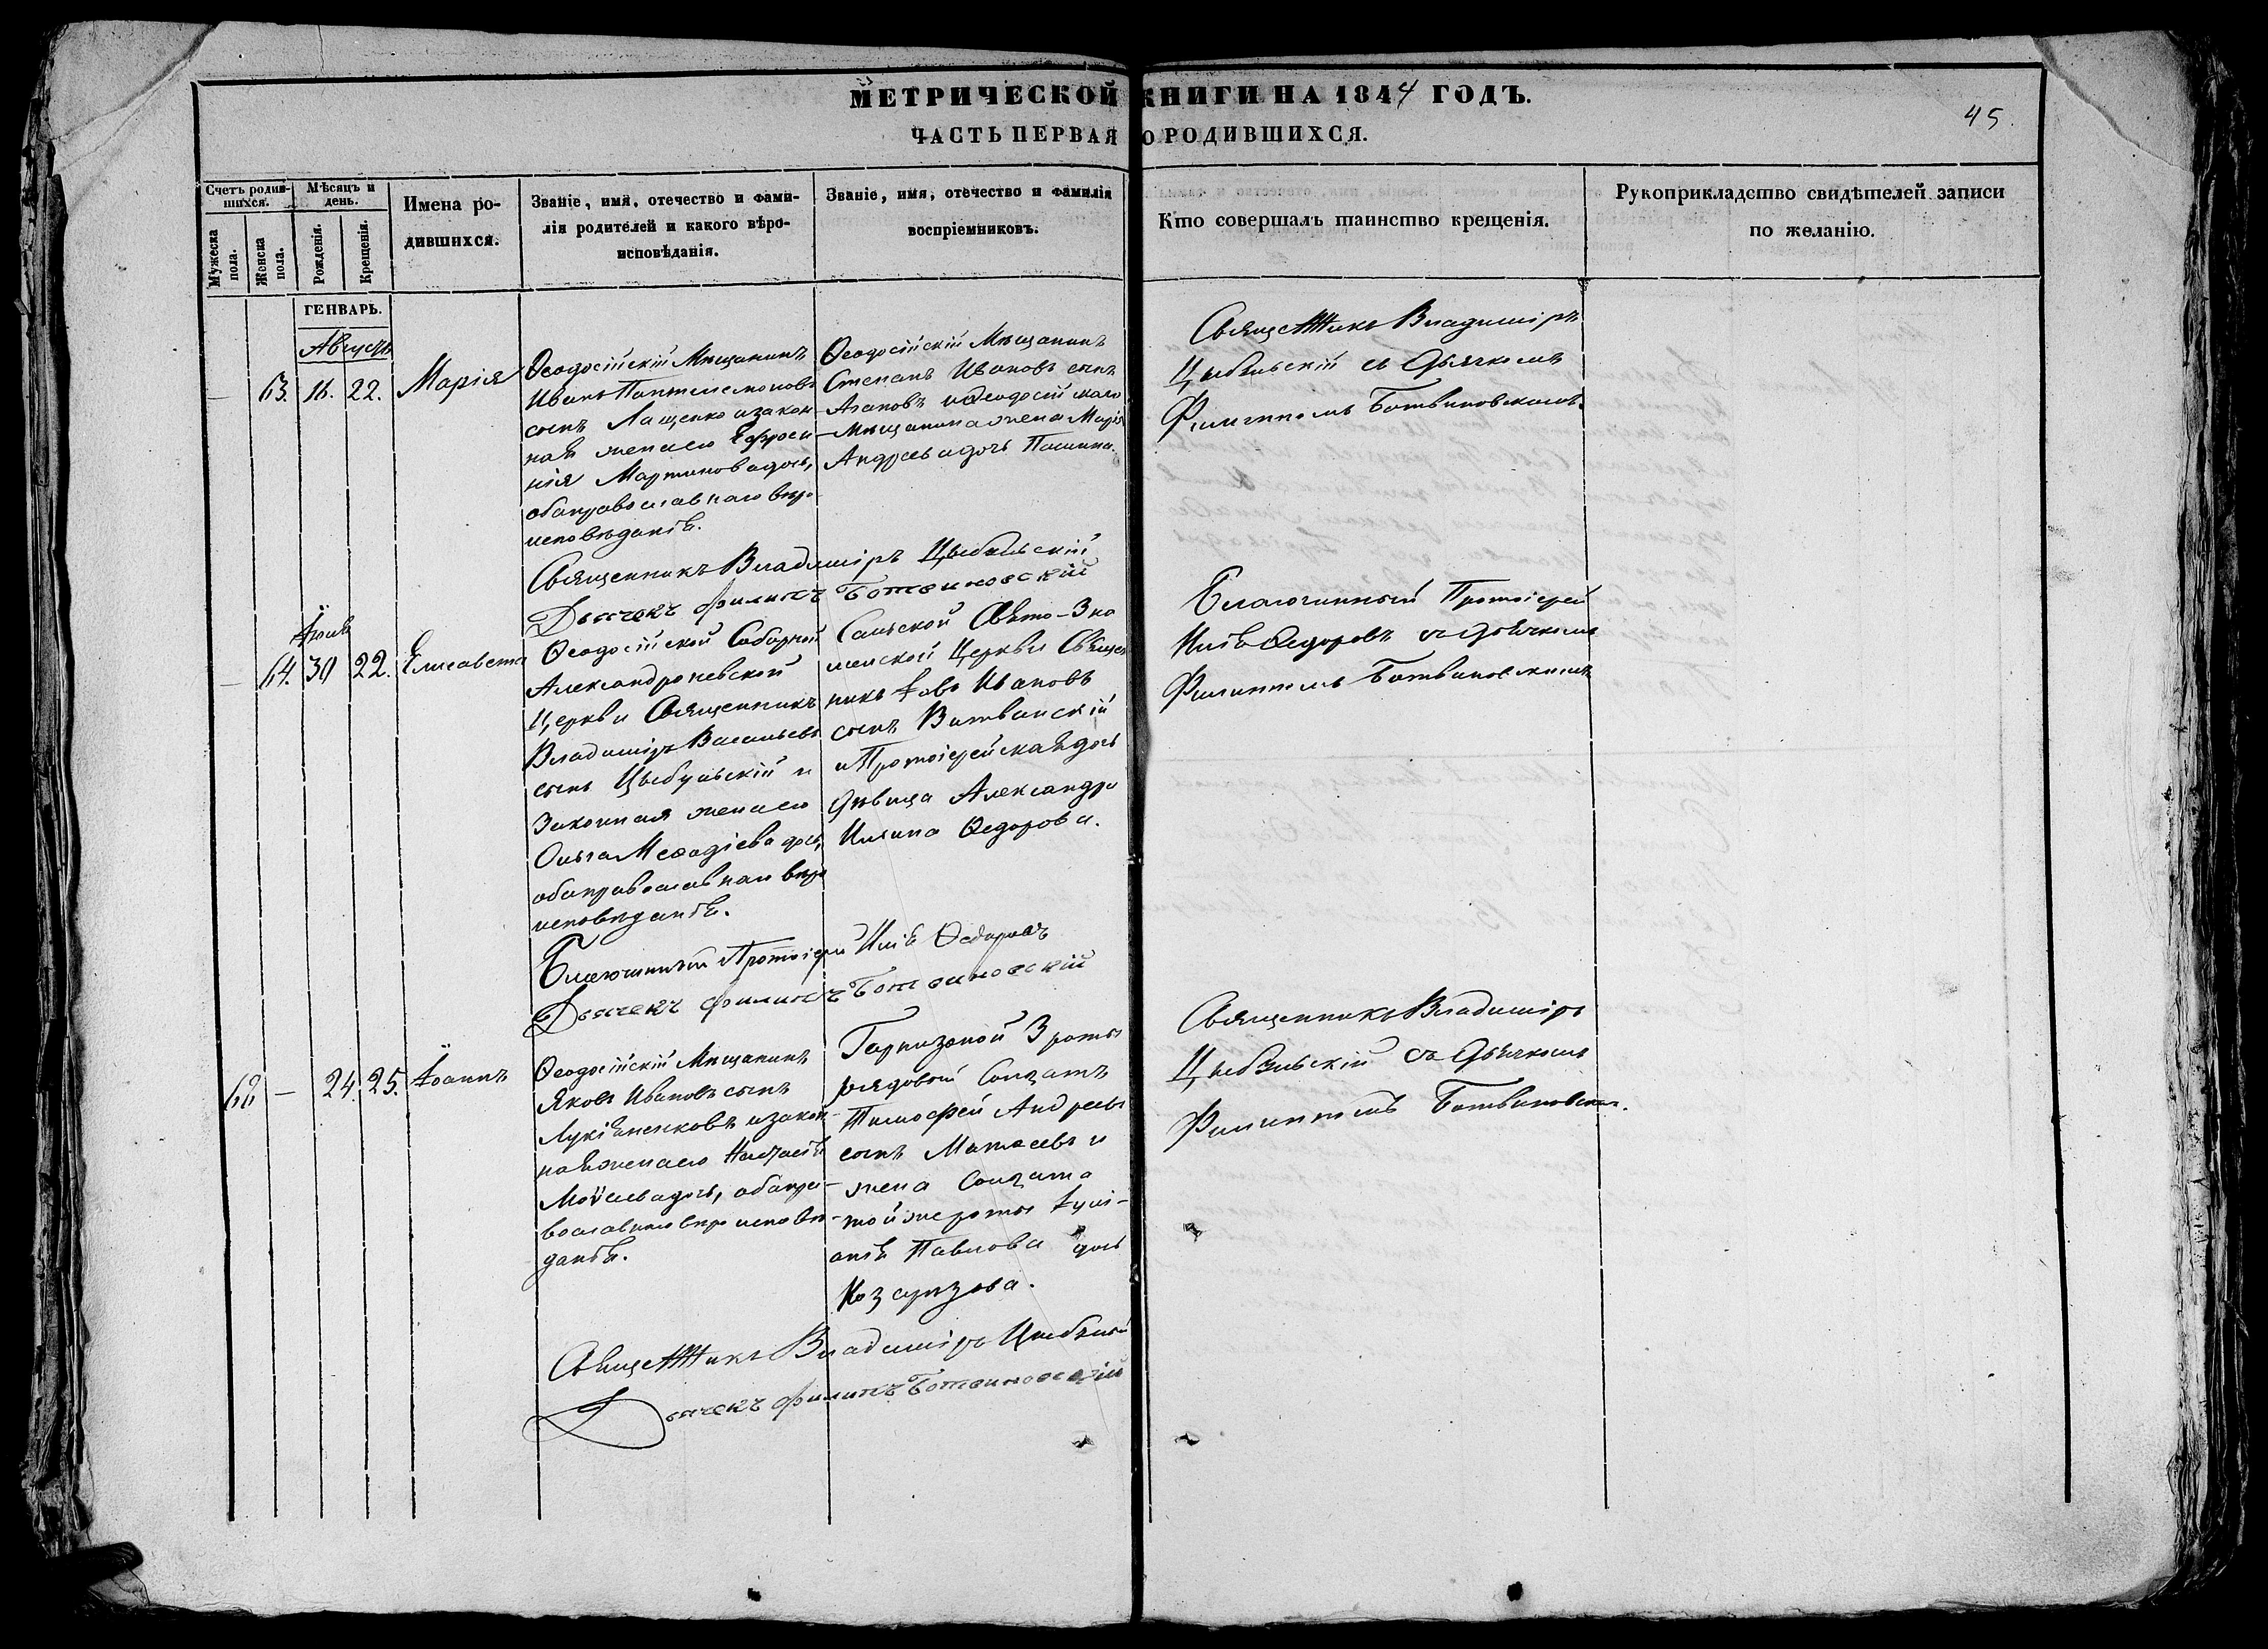 МЕТРИЧЕСКОЙ КНИГИ НА 1844 ГОДЪ.
45.
ЧАСТЬ ПЕРВАЯ О РОДИВШИХСЯ.
Счетъ родив-
шихся.
Мужеска
пола.
Женска
пола.
Мѣсяцъ и
день.
Рожденія.
Крещенія.
Имена ро-
дившихся.
Званіе, имя, отечество и фами-
лія родителей и какого вѣро-
исповѣданія.
Званіе, имя, отечество и фамилія
воспріемниковъ.
Кто совершалъ таинство крещенія.
Рукоприкладство свидѣтелей записи
по желанію.
ГЕНВАРЬ.
Августъ
— 63. 16. 22. Марія
Ѳеодосійскій Мѣщанинъ
Иванъ Пантелемоновъ
сынъ Лащенко и закон-
ная жена его Ефроси-
нія Мартинова дочь,
оба православнаго вѣро-
исповѣданія.
Ѳеодосійскій Мѣщанинъ
Степанъ Ивановъ сынъ
Агаповъ и Ѳеодосійскаго
Мѣщанина жена Марія
Андреева дочь Пашина.
Священникъ Владиміръ
Цыбульскій съ Дьячкомъ
Филиппомъ Ботвиновскимъ.
Священникъ Владиміръ Цыбульскій
Дьячекъ Филипъ Ботвиновскій
Іюля
— 64. 30 22. Елисавета
Ѳеодосійской Соборной
Александроневской
Церкви Священникъ
Владиміръ Васильевъ
сынъ Цыбульскій и
Законная жена его
Ольга Меѳодіева дочь,
оба православнаго вѣро
исповѣданія.
Сальской Свято-Зна
менской Церкви Священ
никъ Іовъ Ивановъ
сынъ Витвинскій
и Протоіерейская дочь
дѣвица Александра
Ильина Ѳедорова.
Благочинный Протоіерей
Илія Ѳедоровъ съ Дьячкомъ
Филиппомъ Ботвиновскимъ
Благочинный Протоіерей Илія Ѳедоровъ
Дьячекъ Филипъ Ботвиновскій
62 — 24. 25. Іоаннъ
Ѳеодосійскій Мѣщанинъ
Яковъ Ивановъ сынъ
Лукіаненковъ и закон
ная жена его Настасія
Моѵсеева дочь, оба пра-
вославнаго вѣро исповѣ-
данія.
Гарнизоной 3 роты
рядовой Солдатъ
Тимофей Андреевъ
сынъ Матвеевъ и
жена Солдата
той же роты Іулі-
анія Павлова дочь
Священникъ Владиміръ
Цыбульскій съ Дьячкомъ
Филиппомъ Ботвиновским.
Священникъ Владиміръ Цыбульскій
Дьячекъ Филипъ Ботвиновскій